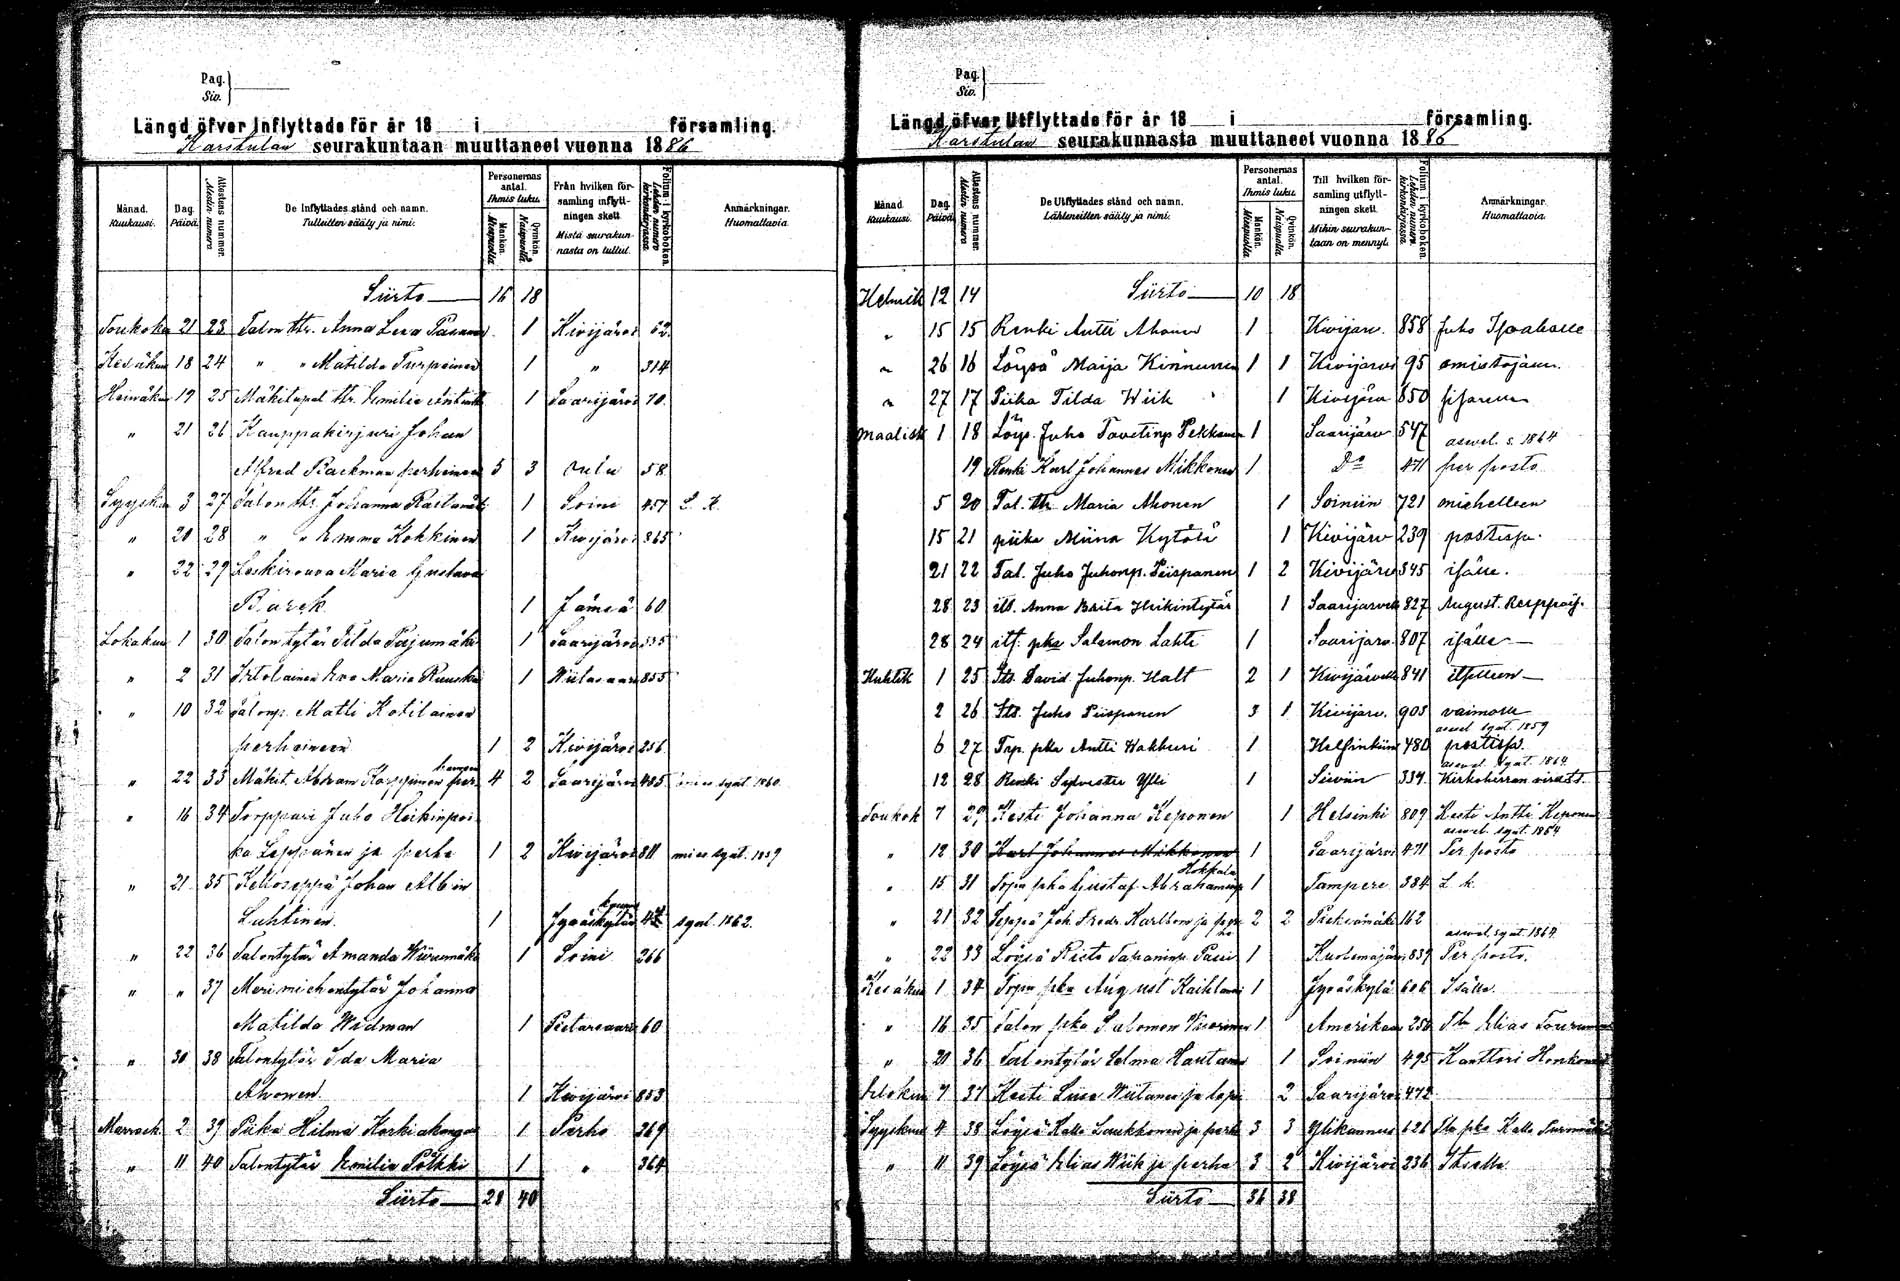 Pag.
Siv.
Längd öfver Inflyttade för år 18 i församling.
Karstulan seurakuntaan muuttaneet vuonna 1886
Månad. Kuukausi.
Dag. Päivä
Attestens nummer. Attestin numero
De Inflyttades stånd och namn. Tulleitten sääty ja nimi:
Personernas antal. Ihmis luku.
Mankön. Miespuolta
Qvinkön. Naispuolta
Från hvilken församling inflyttningen skett. Mistä seurakunnasta on tullut.
Folium i kyrkoboken. Lehden numero kirkonkirjassa
Anmärkningar. Huomattavia
Siirto 16 18
Toukoku 21 23 Talon ttr. Anna Leea 1 Kivijärvi 62
Kesäkuu 18 24 " " Matilda Turpeinen 1 " 314
Heinäkuu 19 25 Mäkitupal. ttr. Emilia 1 Saarijärvi 70
" 21 26 Kauppakirjuri Johan
Alfred Backman perheineen 5 3 Oulu 58
Syyskuu 3 27 Talon ttr. Johanna Rautamäki 1 Soini 457 L. K.
" 20 28 " " Emma Kokkinen 1 Kivijärvi 865
" 22 29 Leskirouva Maria Gustava
1 Jämsä 60
Lokakuu 1 30 Talon tytär Tilda Pajumäki 1 Saarijärvi 535
" 2 31 Itselainen Eva Maria Ruuska 1 Wiitasaari 855
" 10 32 Talonp. Matti Kotilainen
perheineen 1 2 Kivijärvi 256
" 22 33 Mäkit. Abram Koppinen per 4 2 Saarijärvi 485 mies synt. 1860
" 16 34 Torppari Juho Heikinpoi
ka Leppänen ja perhe 1 2 Kivijärvi 811 mies synt. 1859
" 21 35 Kelloseppä Johan Albin
Luhtinen 1 Jyväskylän synt. 1862.
" 22 36 Talontytär Amanda Wiirumäki 1 Soini 266
" " 37 Merimiehentytär Johanna
Matilda Widman 1 Pietarsaari 60
" 30 38 Talontytär Ida Maria
Ahonen 1 Kivijärvi 853
Marrask. 2 39 Piika Hilma Korkiakangas 1 Perho 369
" 11 40 Talontytär Emilia Pölkki 1 " 364
Siirto 28 40
Pag.
Siv.
Längd öfver Utflyttade för år 18 i församling.
Karstulan seurakunnasta muuttaneet vuonna 1886
Månad. Kuukausi.
Dag. Päivä
Attestens nummer. Attestin numero
De Utflyttades stånd och namn. Lähteneitten sääty ja nimi:
Personernas antal. Ihmis luku.
Mankön. Miespuolta
Qvinkön. Naispuolta
Till hvilken församling utflyttningen skett. Mihin seurakuntaan on mennyt.
Folium i kyrkoboken. Lehden numero kirkonkirjassa
Anmärkningar. Huomattavia.
Helmik 12 14 Siirto 10 18
" 15 15 Renki Antti Ahonen 1 Kivijärv. 858 Juho
" 26 16 Löysä Maija Kinnunen 1 1 Kivijärvi 95 omistajaan.
" 27 17 Piika Tilda Wiik 1 Kivijärv 850
Maalisk 1 18 Löys. Juho Tavetinp Pekkanen 1 Saarijärv 547 asevel. s. 1864
19 Renki Karl Johannes Mikkonen 1 Do 471 per posto
5 20 Tal. ttr. Maria Ahonen 1 Soiniin 721 miehelleen
15 21 piika Miina Kytölä 1 Kivijärv 239 postissa.
21 22 Tal. Juho Juhonp. Piispanen 1 2 Kivijärv 345 isälle.
28 23 its. Anna Brita Heikintytär 1 Saarijärvelle 827 August.
28 24 its. pka Salamon Lahti 1 Saarijärv. 807 isälle
Huhtik 1 25 Its. David Juhonp. Halt 2 1 Kivijärvelle 841 itselleen
2 26 Its. Juho Piispanen 3 1 Kivijärv. 903 vaimolle
asevel synt. 1859
6 27 Tap. pka Antti Hakkuri 1 Helsinkiin 480 postissa.
asevel. synt. 1864
12 28 Renki Sylvester Ylli 1 334 Kirkoherran virast.
Toukok 7 29 Kesti Johanna Keponen 1 Helsinki 809 Kesti Antti Keponen
asevel. synt. 1864
" 12 30 Karl Johannes Mikkonen 1 Saarijärvi 471 Per posto
" 15 31 Torp. pka Gustaf Abrahaminp Hokkala 1 Tampere 384 L. k.
" 21 32 Seppä Joh. Fredr. Karlbom ja perhe 2 2 Pieksämäki 162
asevel. synt. 1864
" 22 33 Löysä Risto Tahaninp. 1 Kuolemajärvi 839 Per posto.
Kesäkuu 1 34 Torp. pka August Kaihlanen 1 Jyväskylä 606 Isälle
" 16 35 Talon pka Salomon Vuorinen 1 Amerikaan 250 Tln Elias
" 20 36 Talontytär Selma Hautanen 1 Soiniin 495 Kanttori Honkonen
Elokuu 7 37 Kesti Liisa Wiitanen ja laps 2 Saarijärvi 472
Syyskuu 4 38 Löysä Kalle Laukkonen ja perhe 3 3 Ylikannus 626 Tln pka Kalle
" 11 39 Löysä Elias Wiik ja perhe 3 2 Kivijärvi 236 Itselle
Siirto 36 38